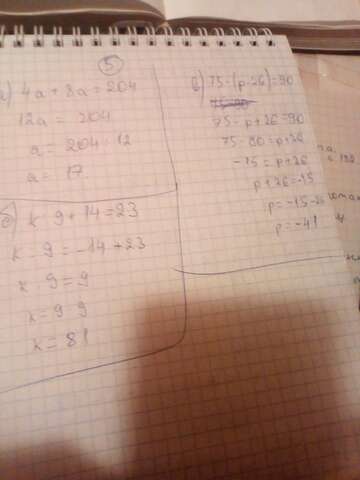 5
а) 4a + 8a = 204
12a = 204
a = 204 : 12
a = 17
б) k : 9 + 14 = 23
k : 9 = -14 + 23
k : 9 = 9
k = 9 · 9
k = 81
в) 75 - (p - 26) = 90
75 - p + 26 = 90
75 - 90 = p + 26
-15 = p + 26
p + 26 = -15
p = -15 - 26
p = -41